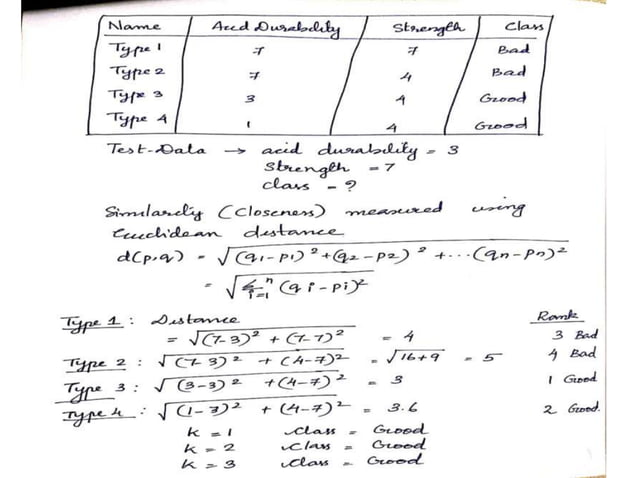 Name Acid Durability Strength Class
Type 1 7 7 Bad
Type 2 7 4 Bad
Type 3 3 4 Good
Type 4 1 4 Good
Test-Data → acid durability = 3
Strength = 7
class = ?
Similarity (Closeness) measured using
Euclidean distance
d(p,q) = √(q1-p1)² + (q2-p2)² + ... (qn-pn)²
= √Σⁿi=1 (qi-pi)²
Type 1 : Distance Rank
= √(7-3)² + (7-7)² = 4 3 Bad
Type 2 : √(7-3)² + (4-7)² = √16+9 = 5 4 Bad
Type 3 : √(3-3)² + (4-7)² = 3 1 Good
Type 4 : √(1-3)² + (4-7)² = 3.6 2 Good.
k = 1 Class = Good
k = 2 Class = Good
k = 3 Class = Good